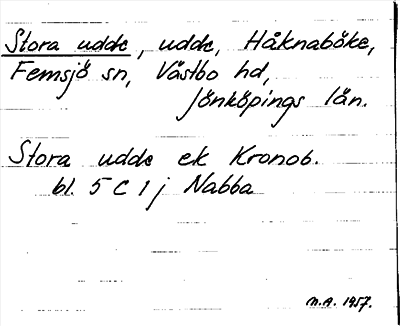 Stora udde, udde, Håknaböke,
Femsjö sn, Västbo hd,
Jönköpings län.
Stora udde ek Kronob.
bl. 5 C 1 j Nabba
M.A. 1957.